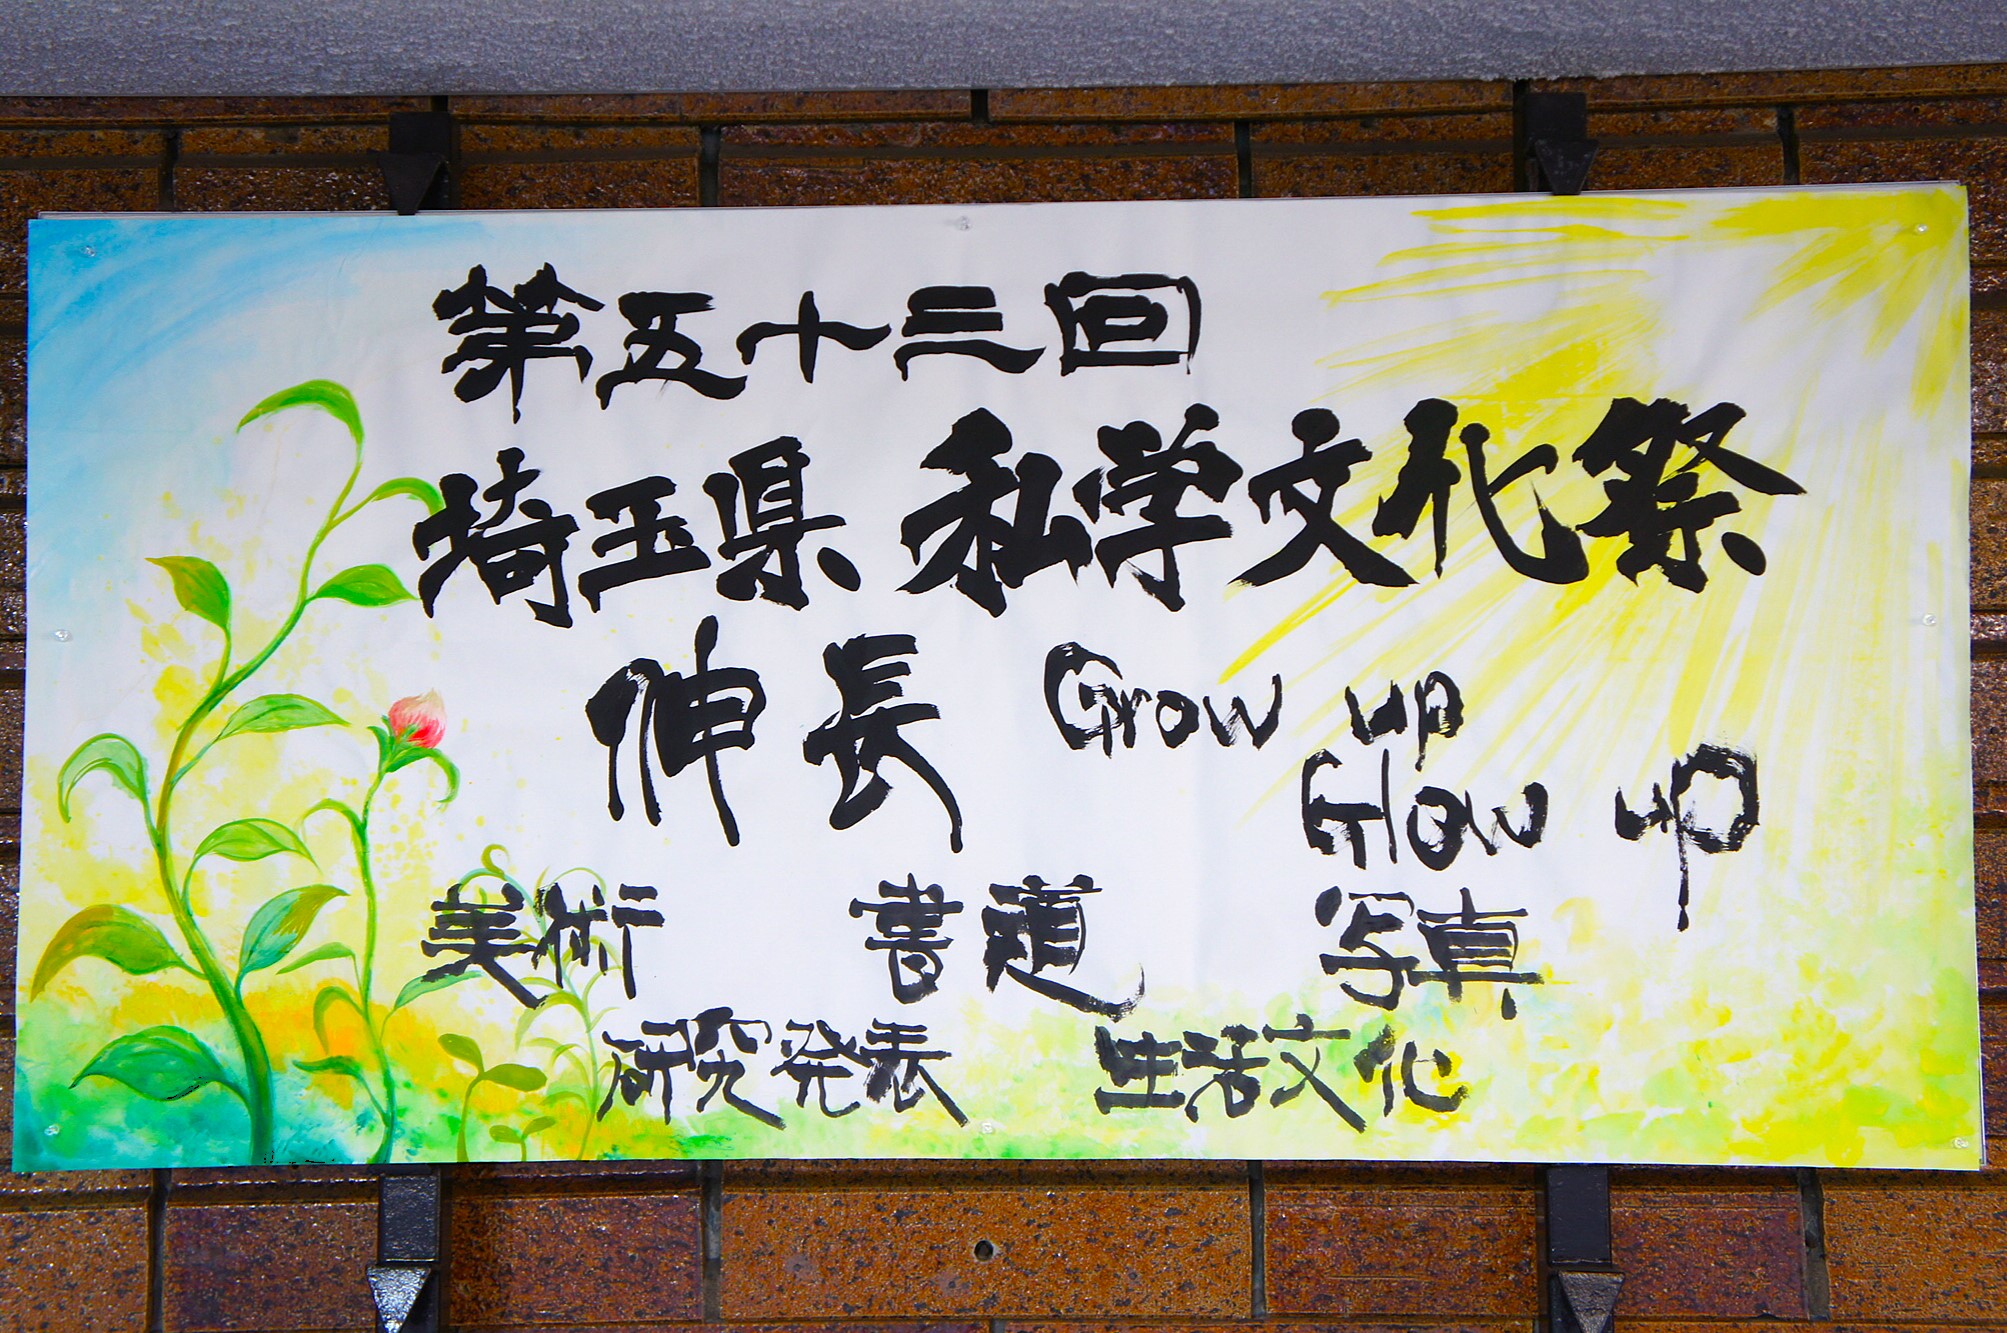 第五十三回
埼玉県 私学文化祭
伸長 Grow up
Glow up
美術 書道 写真
研究発表 生活文化